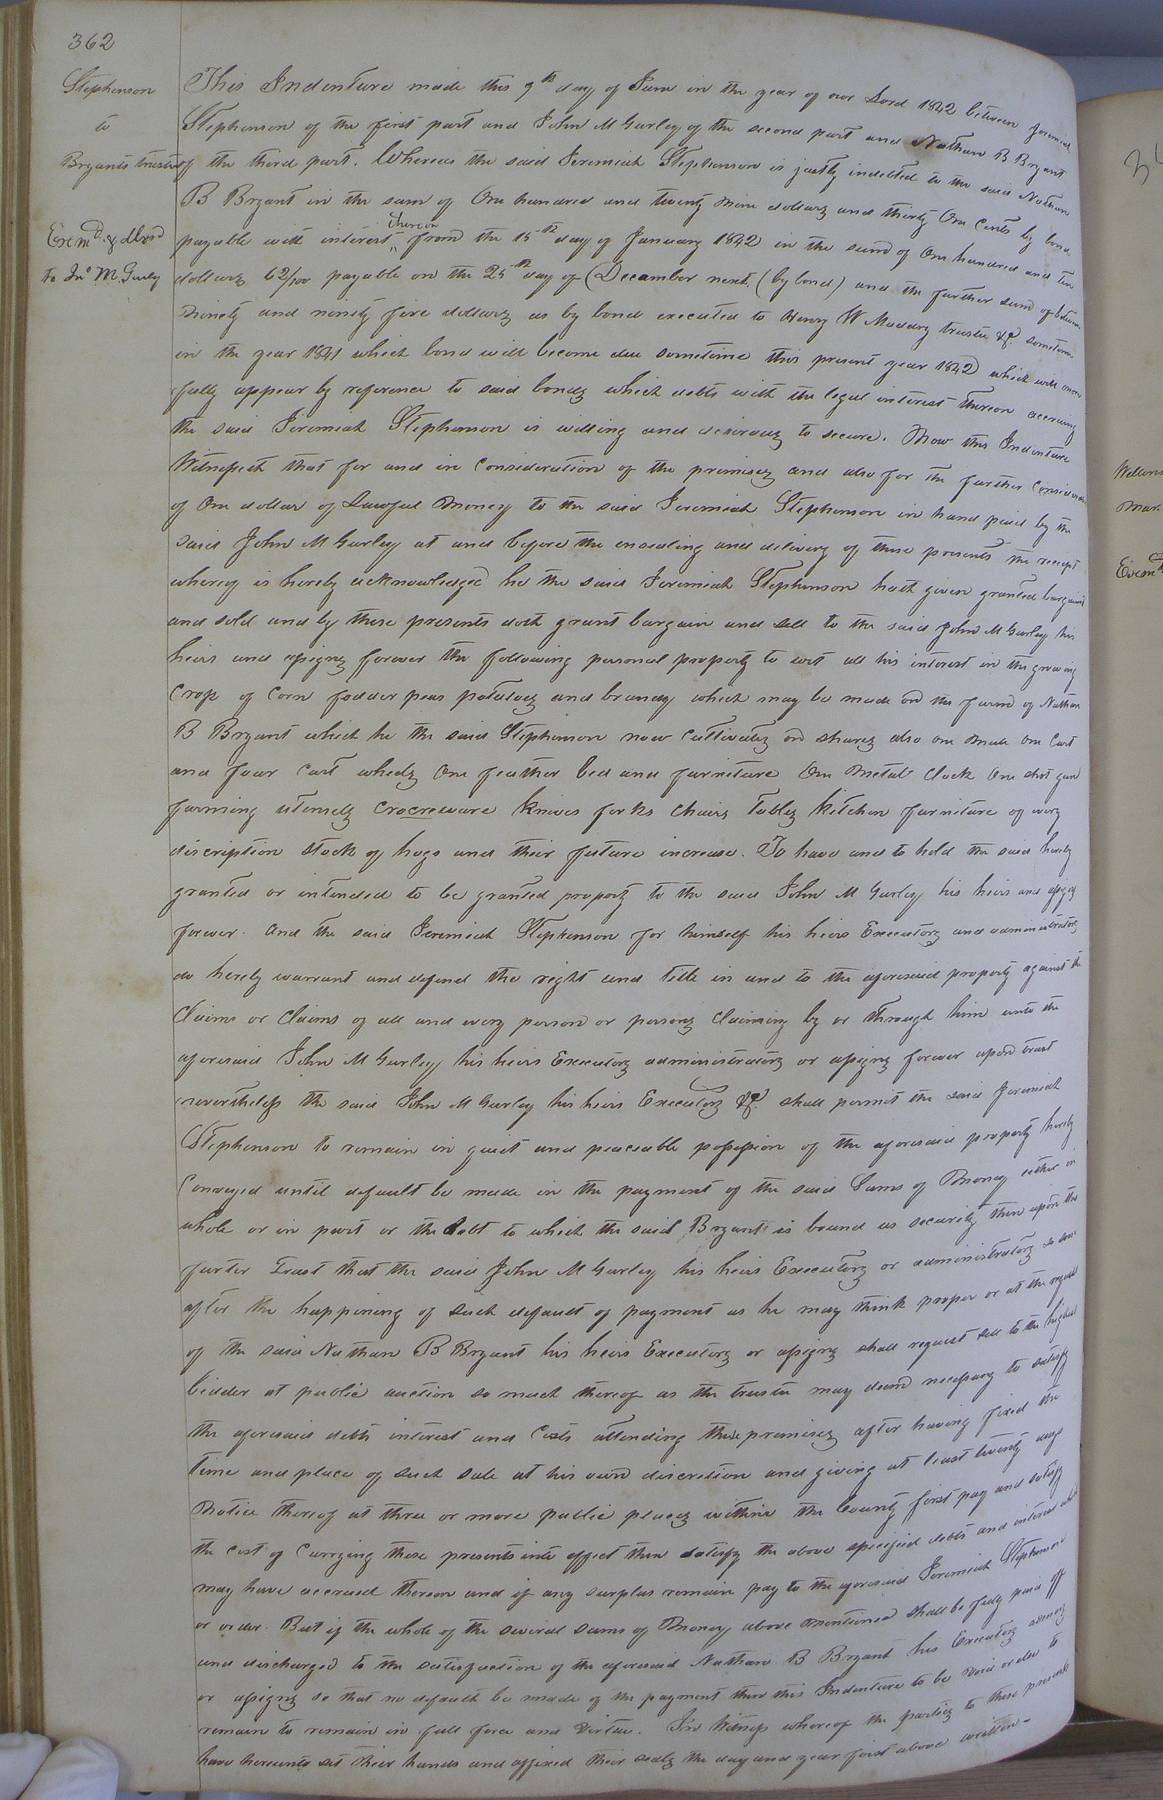 362
Stephenson
to
Bryants trustee
Exemd. & dlvrd
to Jno M. Gurly
This Indenture made this 9th day of June in the year of our Lord 1842 between Jeremiah
Stephenson of the first part and John M Gurley of the second part and Nathan B Bryant
of the third part. Whereas the said Jeremiah Stephenson is justly indebted to the said Nathan
B Bryant in the sum of One hundred and twenty nine dollars and thirty One Cents by bond
payable with interest thereon from the 15th day of January 1842 in the sum of One hundred and ten
dollars 62/100 payable on the 25th day of December next (by bond) and the further sum of between
ninety and ninety five dollars as by bond executed to Henry W Maddry trustee &c sometime
in the year 1841 which bond will become due sometime this present year 1842 which will more
fully appear by reference to said bonds which debts with the legal interest thereon accruing
the said Jeremiah Stephenson is willing and desirous to secure. Now this Indenture
Witnesseth that for and in Consideration of the premises and also for the further Consideration
of One dollar of Lawful Money to the said Jeremiah Stephenson in hand paid by the
said John M Gurley at and before the ensealing and delivery of these presents the receipt
whereof is hereby acknowledged he the said Jeremiah Stephenson hath given granted bargained
and sold and by these presents doth grant bargain and sell to the said John M Gurley his
heirs and assigns forever the following personal property to wit all his interest in the growing
Crop of Corn fodder peas potatoes and brandy which may be made on the farm of Nathan
B Bryant which he the said Stephenson now Cultivates on shares also one Mule one Cart
and four Cart wheels One feather bed and furniture One Metal Clock One shot gun
farming utensels Crocreware knives forks Chairs Tables kitchen furniture of every
discription Stock of hogs and their future increase. To have and to hold the said hereby
granted or intended to be granted property to the said John M Gurley his heirs and assigns
forever. And the said Jeremiah Stephenson for himself his heirs Executors and administrators
do hereby warrant and defend the right and title in and to the aforesaid property against the
Claims or Claims of all and every person or persons Claiming by or through him unto the
aforesaid John M Gurley his heirs Executors administrators or assigns forever upon trust
nevertheless the said John M Gurley his heirs Executors &c. shall permit the said Jeremiah
Stephenson to remain in quiet and peaceable possession of the aforesaid property hereby
Conveyed until default be made in the payment of the said Sums of Money either in
whole or in part or the debt to which the said Bryant is bound as security then upon this
furter Trust that the said John M Gurley his heirs Executors or administrators so soon
after the happining of such default of payment as he may think proper or at the request
of the said Nathan B Bryant his heirs Executors or assigns shall request sell to the highest
bidder at public auction so much thereof as the trustee may deem necessary to satisfy
the aforesaid debts interest and Costs attending these premises after having fixed the
time and place of such sale at his own discretion and giving at least twenty days
Notice thereof at three or more public places within the County first pay and satisfy
the cost of Carrying these presents into effect then satisfy the above specified debts and interest which
may have accrued thereon and if any surplus remain pay to the aforesaid Jeremiah Stephenson
or order. But if the whole of the several sums of Money above mentioned shall be fully paid off
and discharged to the satisfaction of the aforesaid Nathan B Bryant his Executors
or assigns so that no default be made of the payment then this Indenture to be void or else to
remain to remain in full force and Virtue. In Witness whereof the parties to these presents
have hereunto set their hands and affixed their seals the day and year first above written -
Mar.
Exemd